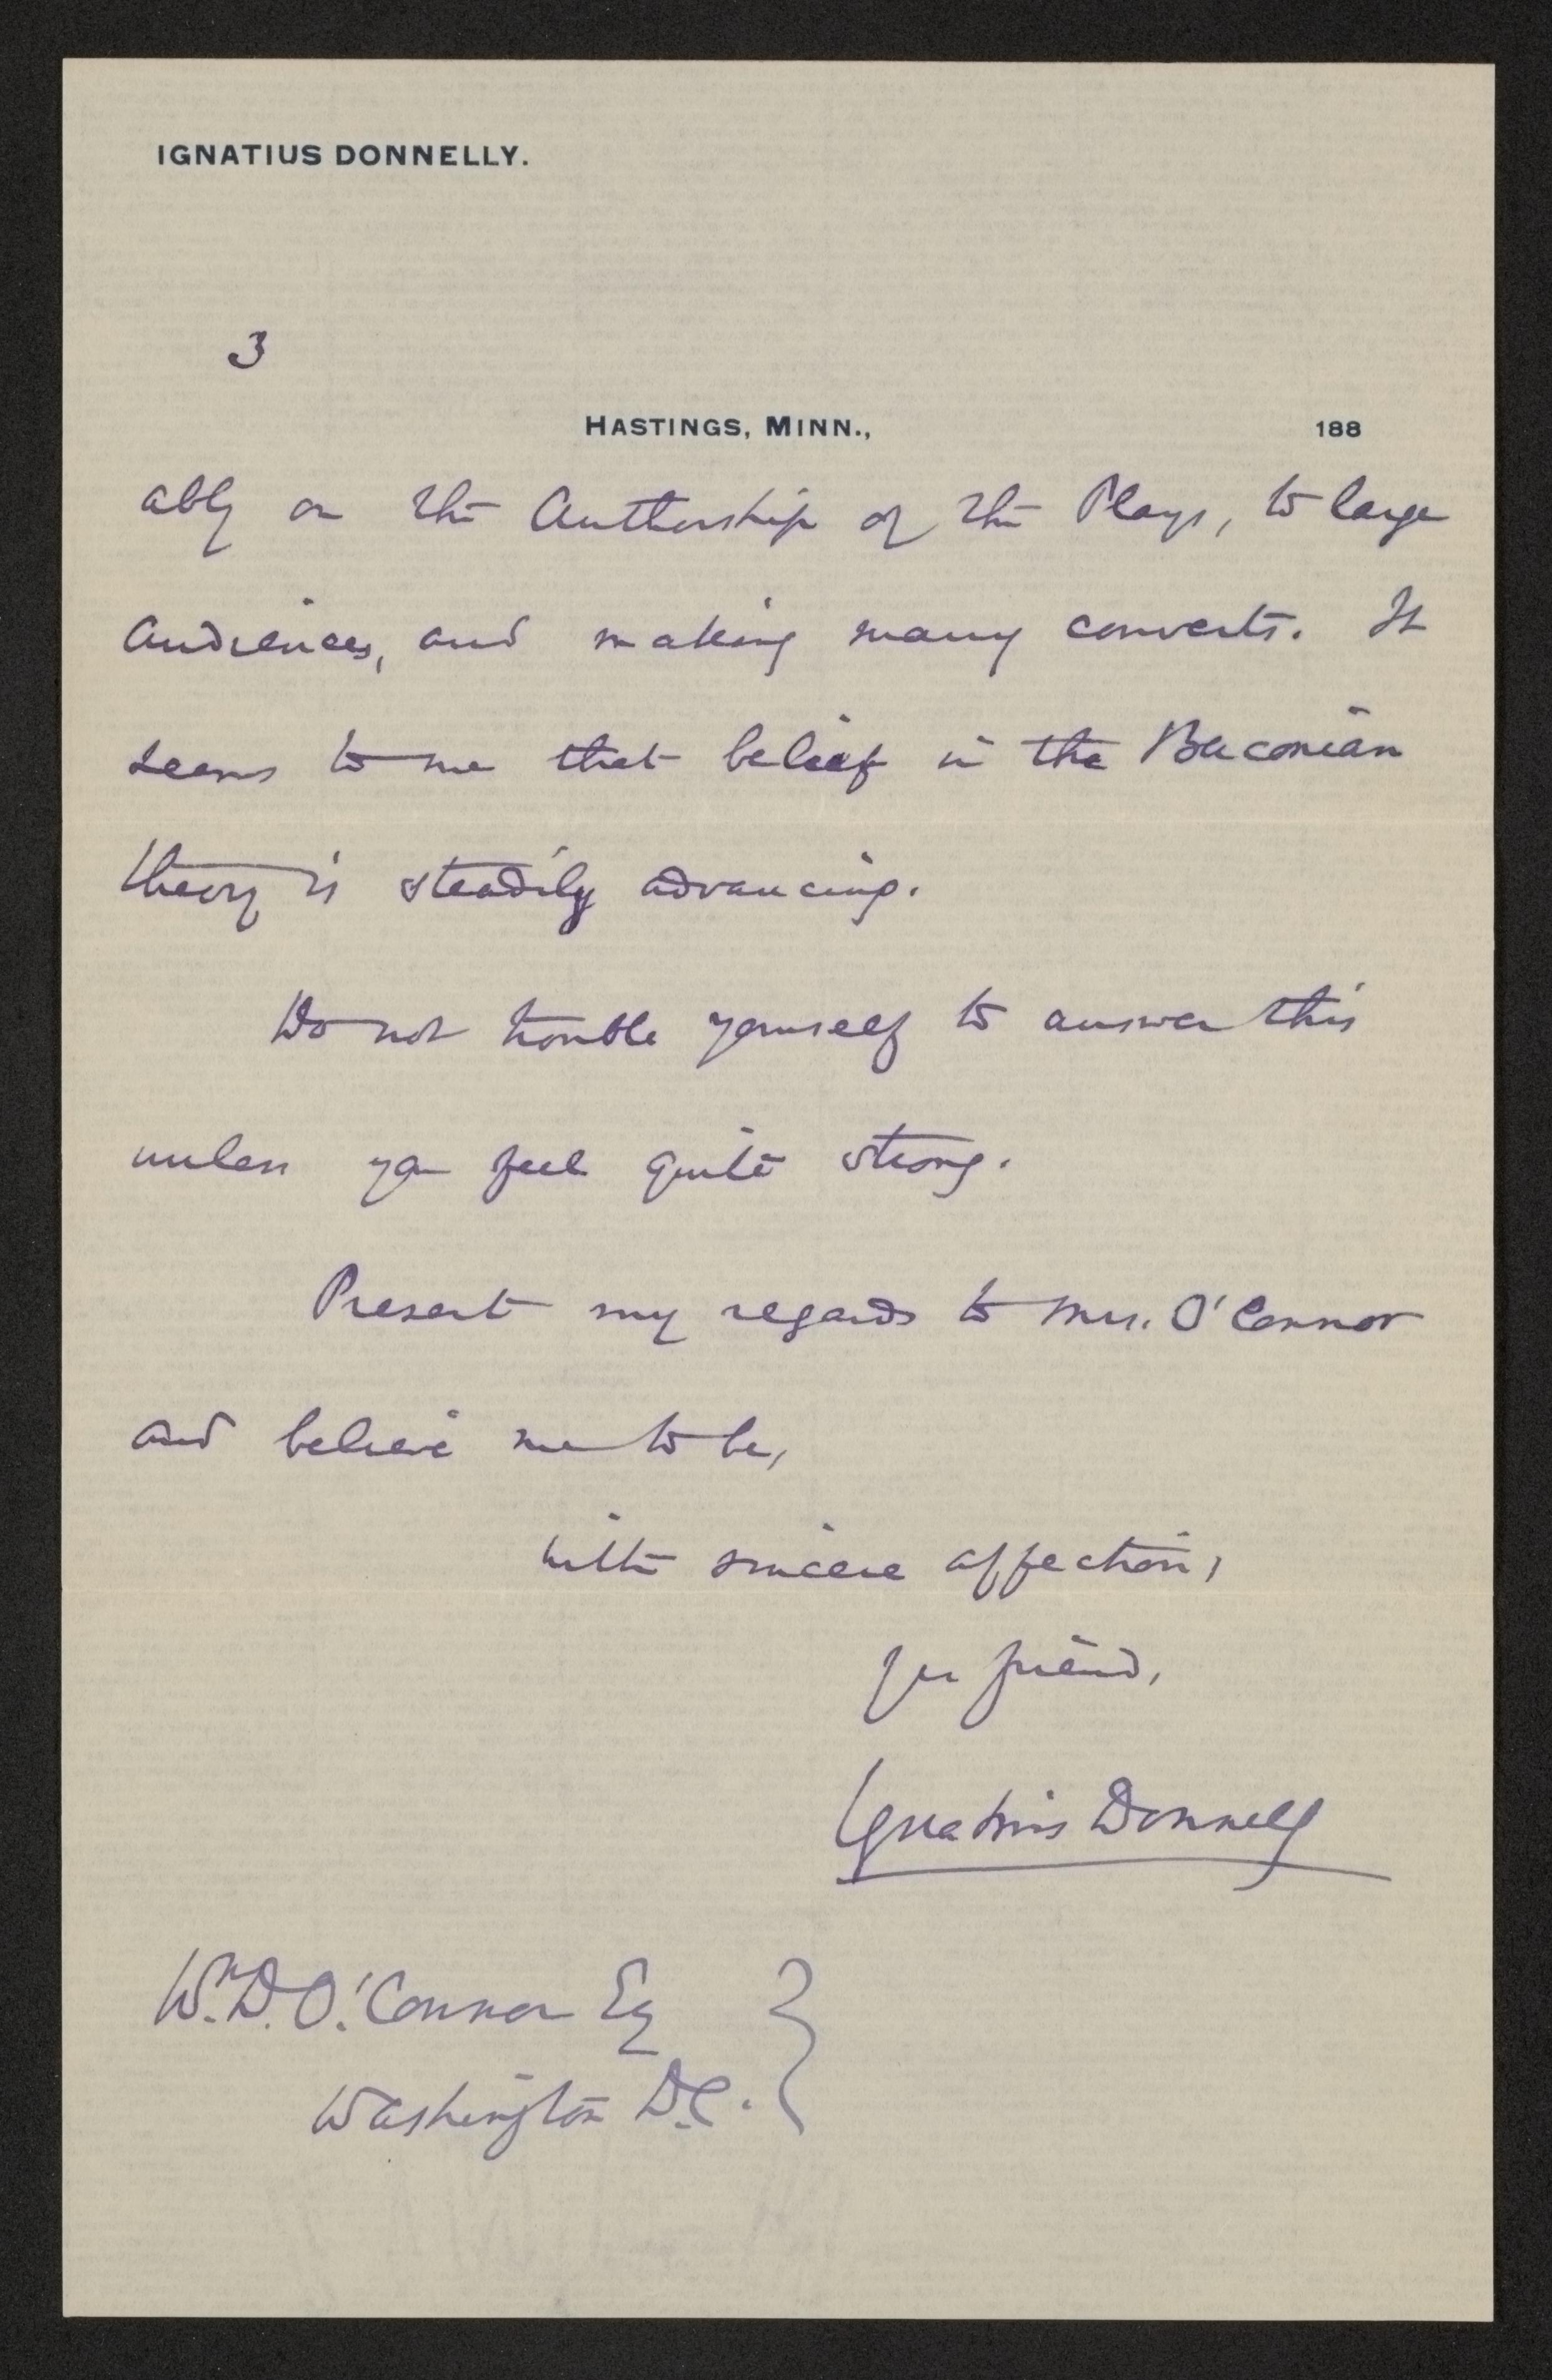 IGNATIUS DONNELLY.
3
HASTINGS, MINN., 188
ably on the Authorship of the Plays, to large
audiences, and making many converts. It
seems to me that belief in the Baconian
theory is steadily advancing.
Do not trouble yourself to answer this
unless you feel quite strong.
Present my regards to Mrs. O'Connor
and believe me to be,
with sincere affection,
yr friend,
Ignatius Donnelly
Wm. D. O'Connor Esq
Washington D.C.